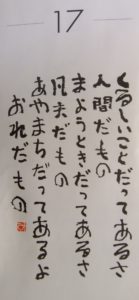 17
くるしいことだってあるさ
人間だもの
まようときだってあるさ
凡夫だもの
あやまちだってあるよ
おれだもの